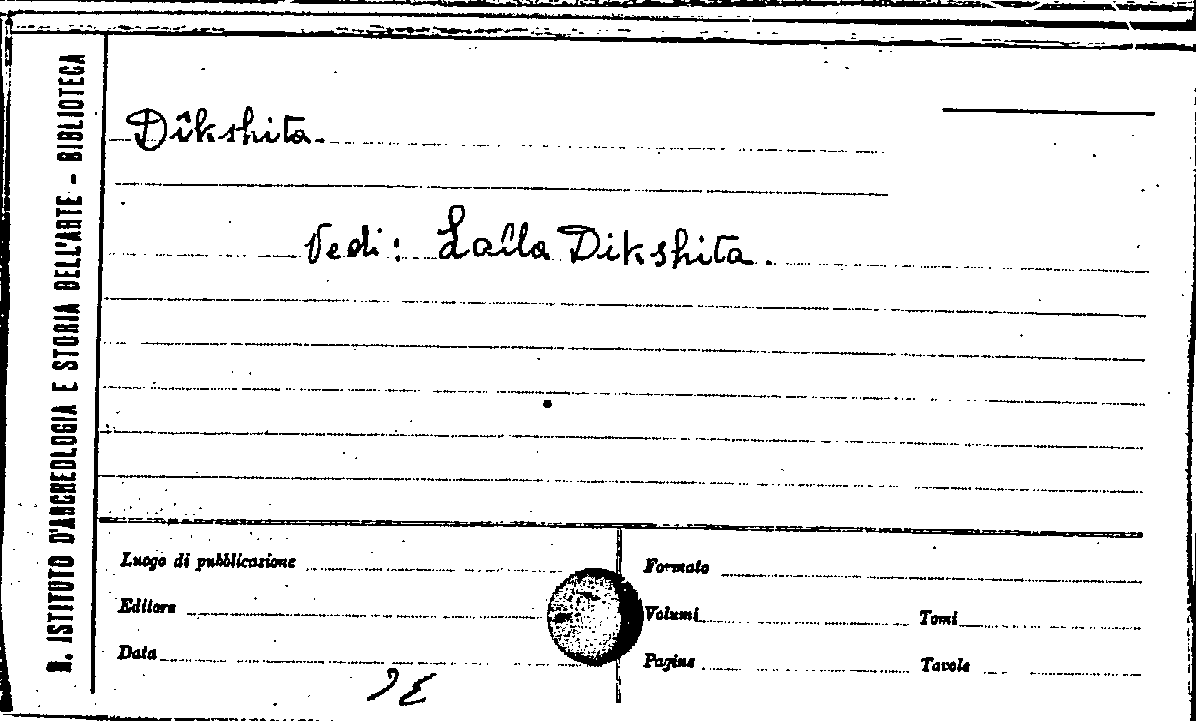 R. ISTITUTO D'ARCHEOLOGIA E STORIA DELL'ARTE - BIBLIOTECA
Dîkshita.
Vedi: Laîla Dikshita.
Luogo di pubblicazione
Formato
Editore
Volumi
Tomi
Data
Pagine
Tavole